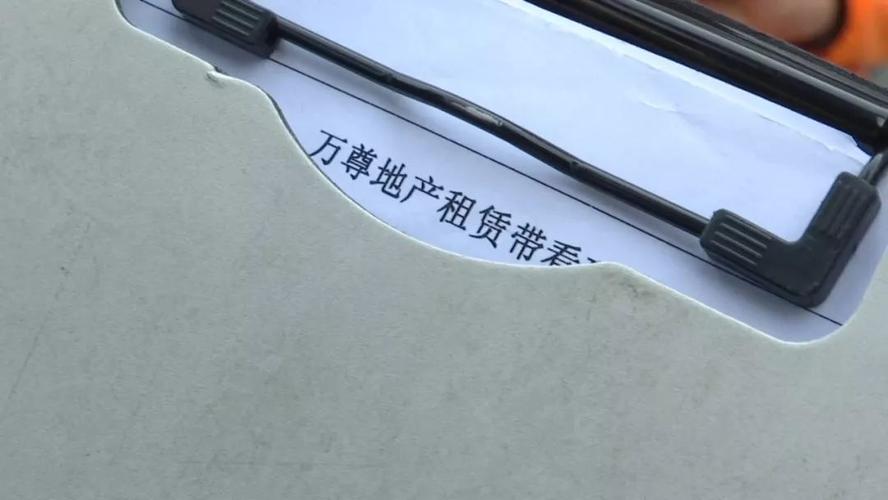 万尊地产租赁带看